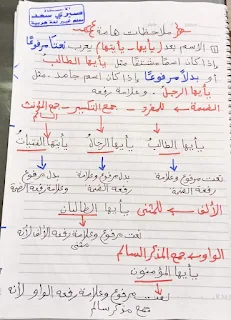 ملاحظات هامة
① الاسم بعد (يأيها - يأيتها) يعرب نعتًا مرفوعًا
إذا كان اسمًا مشتقًا مثل يأيها الطالب
أو بدلًا مرفوعًا إذا كان اسم جامد. مثل
يأيها الرجل. وعلامة رفعه
الضمة ← للمفرد - جمع التكسير - جمع المؤنث
السالم
يأيها الطالب يأيها الرجال يأيتها الفتيات
نعت مرفوع وعلامة بدل مرفوع وعلامة بدل مرفوع وعلامة
رفعه الضمة رفعه الضمة رفعه الضمة
الألف ← للمثنى يأيها الطالبان
نعت مرفوع وعلامة رفعه الألف لأنه
مثنى
الواو ← جمع المذكر السالم
يأيها المؤمنون
نعت مرفوع وعلامة رفعه الواو لأنه
جمع مذكر سالم